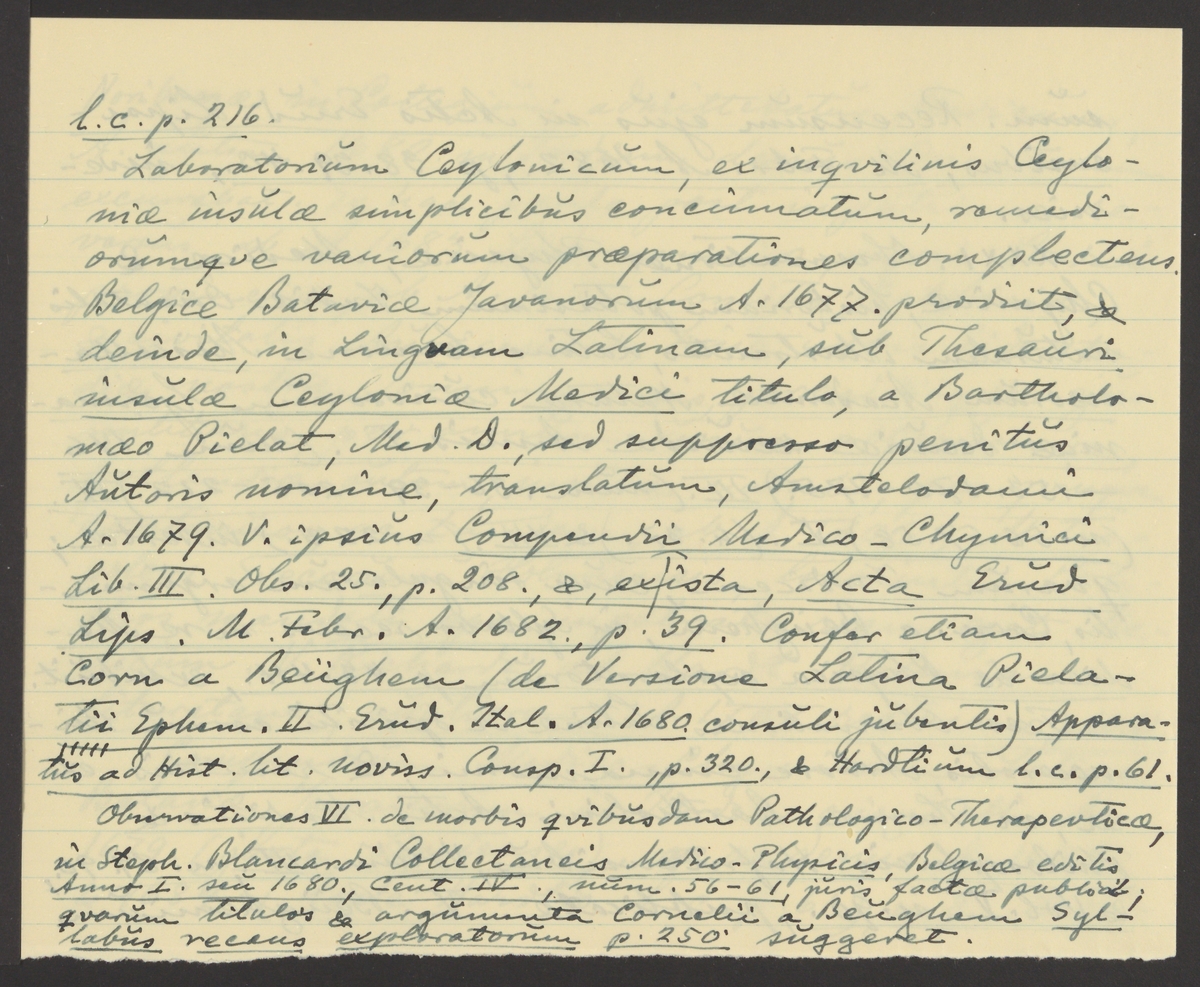 l.c. p. 216.
Laboratorium Ceylonicum, ex inqvilinis Ceylo-
niæ insulæ simplicibus concinnatum, remedi-
orumqve variorum præparationes complectens.
Belgice Bataviæ Javanorum A. 1677. prodiit, &
deinde, in Lingvam Latinam, sub Thesauri
insulæ Ceyloniæ Medici titulo, a Bartholo-
mæo Pielat, Med. D., sed suppresso penitus
Autoris nomine, translatum, Amstelodami
A. 1679. V. ipsius Compendii Medico-Chymici
Lib. III. Obs. 25., p. 208., &, ex ista, Acta Erud
Lips. M. Febr. A. 1682., p. 39. Confer etiam
Corn a Beüghem (de Versione Latina Piela-
tii Ephem. II. Erud. Ital. A. 1680. consuli jubentis) Appara-
tus ad Hist. lit. noviss. Consp. I., p. 320., & Hardtium l.c. p. 61.
Observationes VI. de morbis qvibusdam Pathologico-Therapevticæ,
in Steph. Blancardi Collectaneis Medico-Physicis, Belgice editis
Anno I. seu 1680., Cent. IV., num. 56-61, juris factæ publici;
qvarum titulos & argumenta Cornelii a Beughem Syl-
labus recens exploratorum p. 250 suggeret.